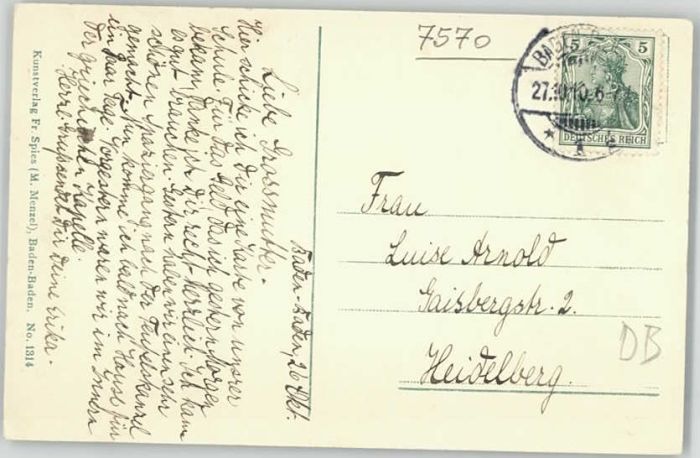 Baden-Baden, 26 Okt.
Liebe Grossmutter.
Hier schicke ich dir eine Karte von unserer
Schule. Für das Geld das ich gestern morgen
bekam danke ich dir recht herzlich. Ich kann
es gut brauchen. Gestern haben wir einen sehr
schönen Spaziergang nach der Teufelskanzel
gemacht. Nun komme ich bald nach Hause für
ein paar Tage. Vorgestern waren wir im Innern
der griechischen Kapelle.
Herzl. Kuss sendet Dir deine Erika.
Kunstverlag Fr. Spies (M. Menzel), Baden-Baden. No. 1314
7570
BADEN
27.10.10. 6-7
* 1
5 5
DEUTSCHES REICH
Frau
Luise Arnold
Gaisbergstr. 2.
Heidelberg.
DB